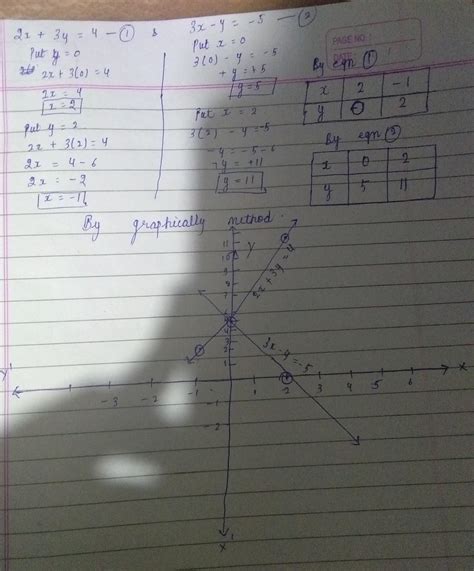 2x + 3y = 4 — ① & 3x - y = -5 — ②
Put y = 0
2x + 3(0) = 4
2x = 4
x = 2
Put y = 2
2x + 3(2) = 4
2x = 4 - 6
2x = -2
x = -1
Put x = 0
3(0) - y = -5
+y = +5
y = 5
Put x = 2
3(2) - y = -5
-y = -5 - 6
-y = +11
y = 11
PAGE NO :
DATE :
By eqn ①
x 2 -1
y 0 2
By eqn ②
x 0 2
y 5 11
By graphically method.
Y
11
10
9
8
7
6
5
4
3
2
1
2x + 3y = 4
3x - y = -5
-3 -2 -1 1 2 3 4 5 6 x
-1
-2
x